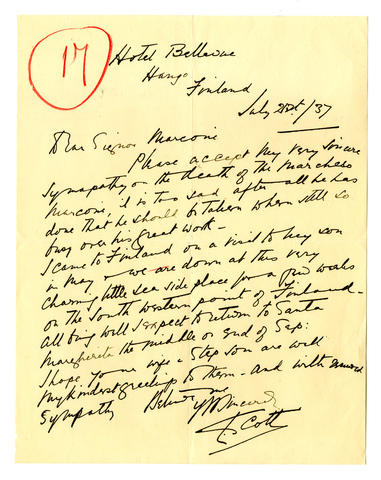 17
Hotel Bellevue
Hango
Finland
July 21st/37
Dear Signor Marconi
Please accept my very sincere
sympathy on the death of the Marchese
Marconi, it is too sad after all he has
done that he should be taken when still so
busy over his great work -
I came to Finland on a visit to my son
in May - we are down at this very
charming little sea side place for a few weeks
on the South Western point of Finland -
All being well I expect to return to Santa
Margherita the middle or end of Sep:
I hope your wife & Step son are well
My kindest greetings to them - And with
sympathy Believe me
Yrs Sincerely
Scott